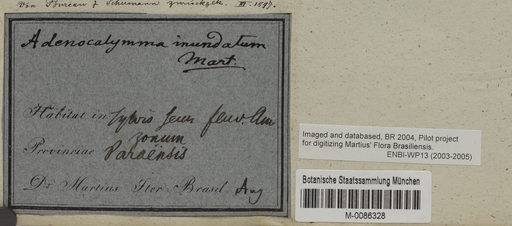 Von Bureau & Schumann zurückgek. XI. 1897.
Adenocalymma inundatum
Mart.
Habitat in sylvis secus fluv. Am
zonum
Provinciae Paraënsis
Dr. Martius Iter Brasil Aug
Imaged and databased, BR 2004, Pilot project
for digitizing Martius' Flora Brasiliensis.
ENBI-WP13 (2003-2005)
Botanische Staatssammlung München
M-0086328